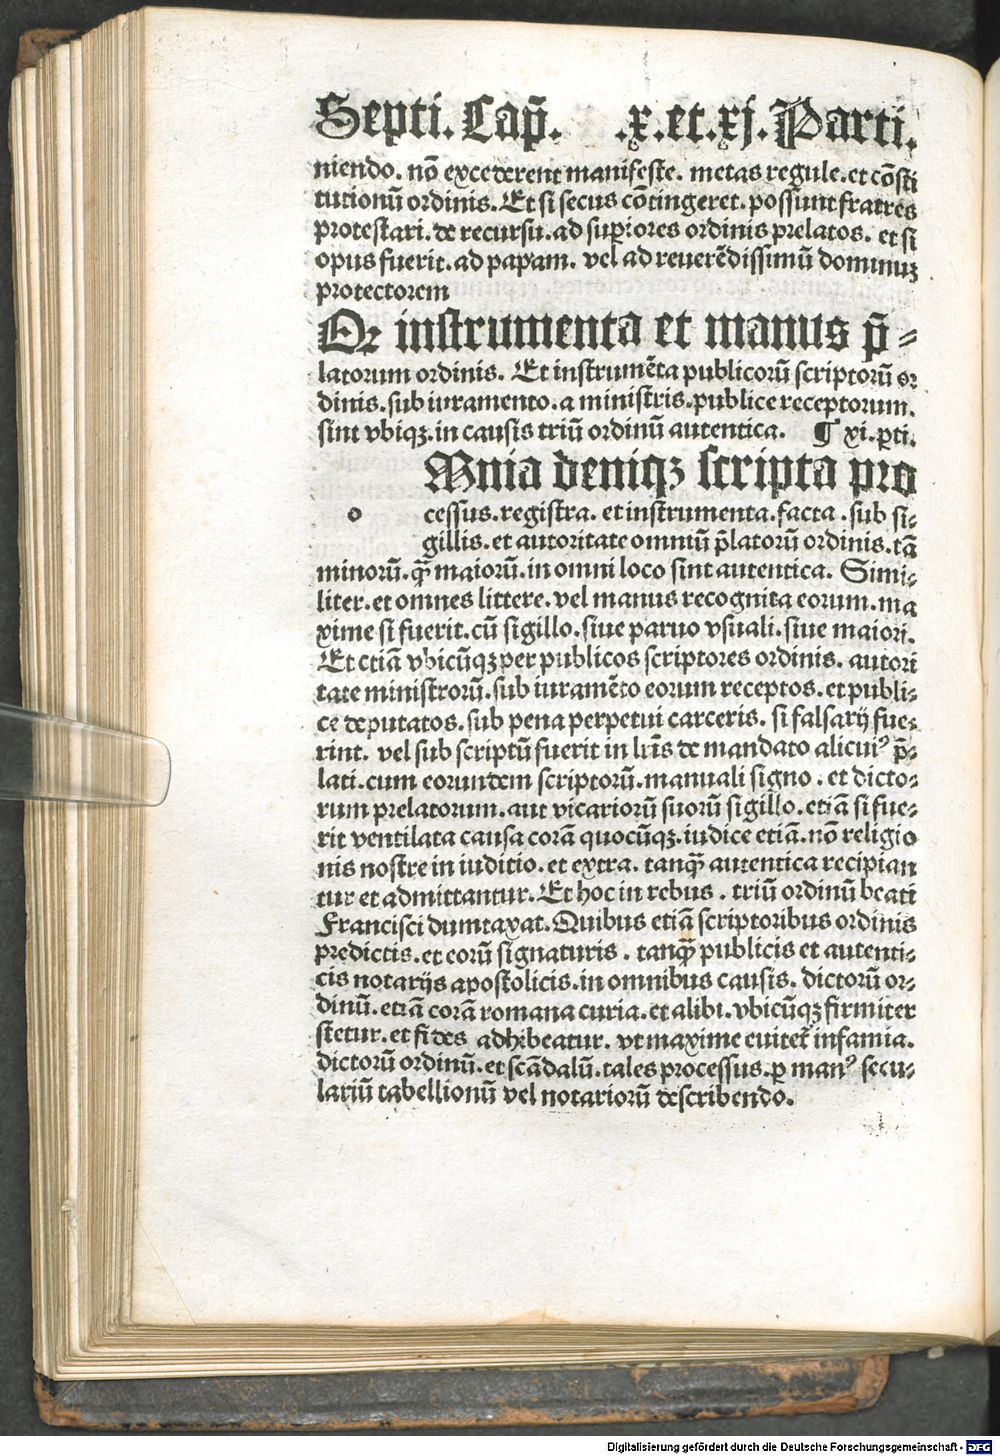 Septi. Cap̄. .x. et .xj. Parti.
niendo. nō excederent manifeste. metas regule. et cōsti
tutionū ordinis. Et si secus cōtingeret. possunt fratres
protestari. de recursu. ad supiores ordinis prelatos. et si
opus fuerit. ad papam. vel ad reuerēdissimū dominuꝫ
protectorem
Qꝛ instrumenta et manus p̄⸗
latorum ordinis. Et instrumēta publicorū scriptorū oꝛ
dinis. sub iuramento. a ministris. publice receptorum.
sint vbiqꝫ. in causis triū ordinū autentica. ¶ xi. ꝑti.
Mnia deniqꝫ scripta pro
o cessus. registra. et instrumenta. facta. sub si⸗
gillis. et autoritate omniū p̄latorū ordinis. tā
minorū. qͣ̄ maiorū. in omni loco sint autentica. Simi⸗
liter. et omnes littere. vel manus recognita eorum. ma
xime si fuerit. cū sigillo. siue paruo vsuali. siue maiori.
Et etiā vbicūqꝫ per publicos scriptores ordinis. autori
tate ministrorū. sub iuramēto eorum receptos. et publi⸗
ce deputatos. sub pena perpetui carceris. si falsarij fue⸗
rint. vel sub scriptū fuerit in lr̄is de mandato alicuiꝰ p̄⸗
lati. cum eorundem scriptorū. manuali signo. et dicto⸗
rum prelatorum. aut vicariorū suorū sigillo. etiā si fue⸗
rit ventilata causa corā quocūqꝫ. iudice etiā. nō religio
nis nostre in iuditio. et extra. tanqͣ̄ autentica recipian
tur et admittantur. Et hoc in rebus. triū ordinū beati
Francisci dumtaxat. Quibus etiā scriptoribus ordinis
predictis. et eorū signaturis. tanqͣ̄ publicis et autenti⸗
cis notarijs apostolicis. in omnibus causis. dictorū or⸗
dinū. etiā corā romana curia. et alibi. vbicūqꝫ firmiter
stetur. et fides adhibeatur. vt maxime euitet᷑ infamia.
dictorū ordinū. et scādalū. tales processus. ꝑ manꝰ secu⸗
lariū tabellionū vel notariorū describendo.
Digitalisierung gefördert durch die Deutsche Forschungsgemeinschaft - DFG